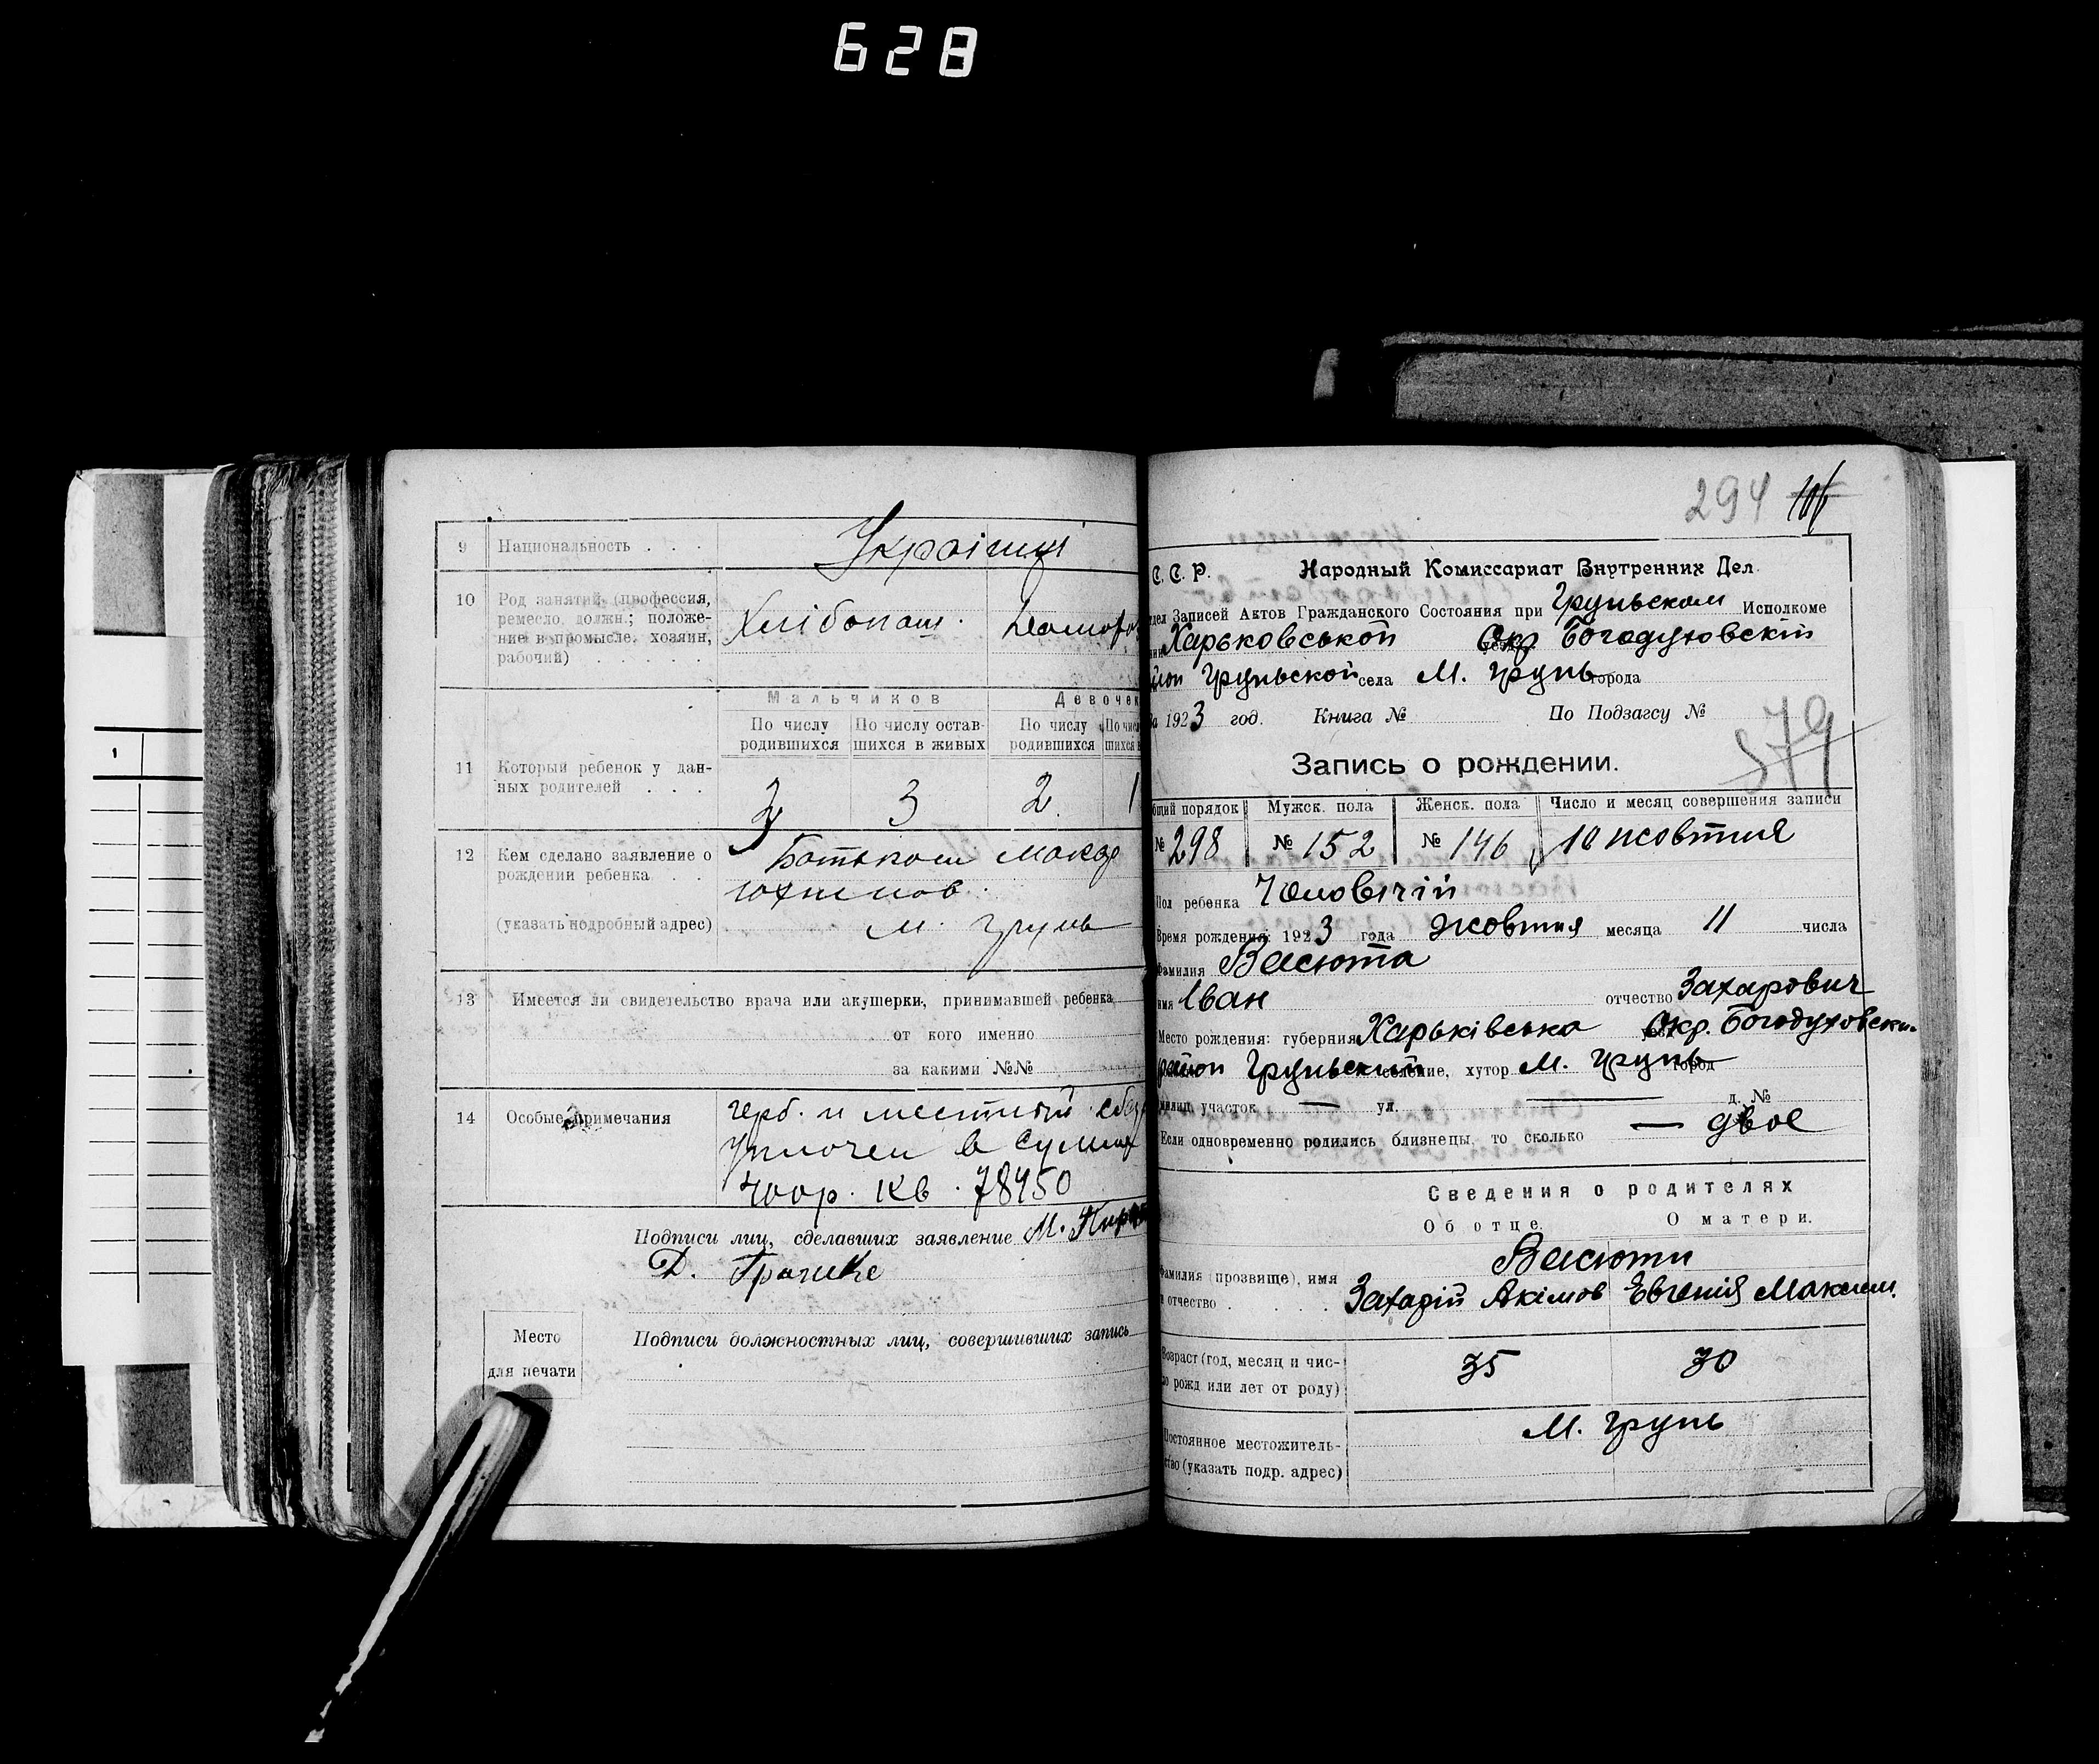 628
9 Национальность . . . Українці
10 Род занятий (профессия,
ремесло, должн.; положе-
ние в промысле, хозяин,
рабочий) . . . . .
Хлібопаш.
Мальчиков Девочек
По числу родившихся По числу остав- шихся в живых По числу родившихся
11 Который ребенок у дан-
ных родителей . . .
3 3 2 1
12 Кем сделано заявление о
рождении ребенка . .
(указать подробный адрес)
Батьком Макар
Юхимов.
м. Грунь
13 Имеется ли свидетельство врача или акушерки, принимавшей ребенка
от кого именно
за какими №№
14 Особые примечания
герб. и местный сбор
уплочен в сумме
400р. Кв. 78450
Подписи лиц, сделавших заявление М.
Д.
Место
для печати
Подписи должностных лиц, совершивших запись
294 106
С. С. Р. Народный Комиссариат Внутренних Дел.
дел Записей Актов Гражданского Состояния при Груньском Исполкоме
Харьковськой Окр Богодуховскій
Груньской села М. Грунь города
за 1923 год. Книга № По Подзагсу №
379
Запись о рождении.
бщий порядок Мужск. пола Женск. пола Число и месяц совершения записи
№ 298 № 152 № 146 10 жовтня
Пол ребенка Чоловічій
Время рождения: 1923 года жовтня месяца 11 числа
Фамилия Васюта
имя Іван отчество Захарович
Место рождения: губерния Харьківська Окр. Богодуховски.
район Груньский селение, хутор М. Грунь город
милиц. участок — ул. д. №
Если одновременно родились близнецы, то сколько — двое
Сведения о родителях
Об отце. О матери.
Васюти
Фамилия (прозвище), имя
и отчество . . . . . Захарій Акімов Евгенія Максим.
Возраст (год, месяц и чис-
ло рожд или лет от роду)
35 30
Постоянное местожитель-
ство (указать подр. адрес)
М. Грунь